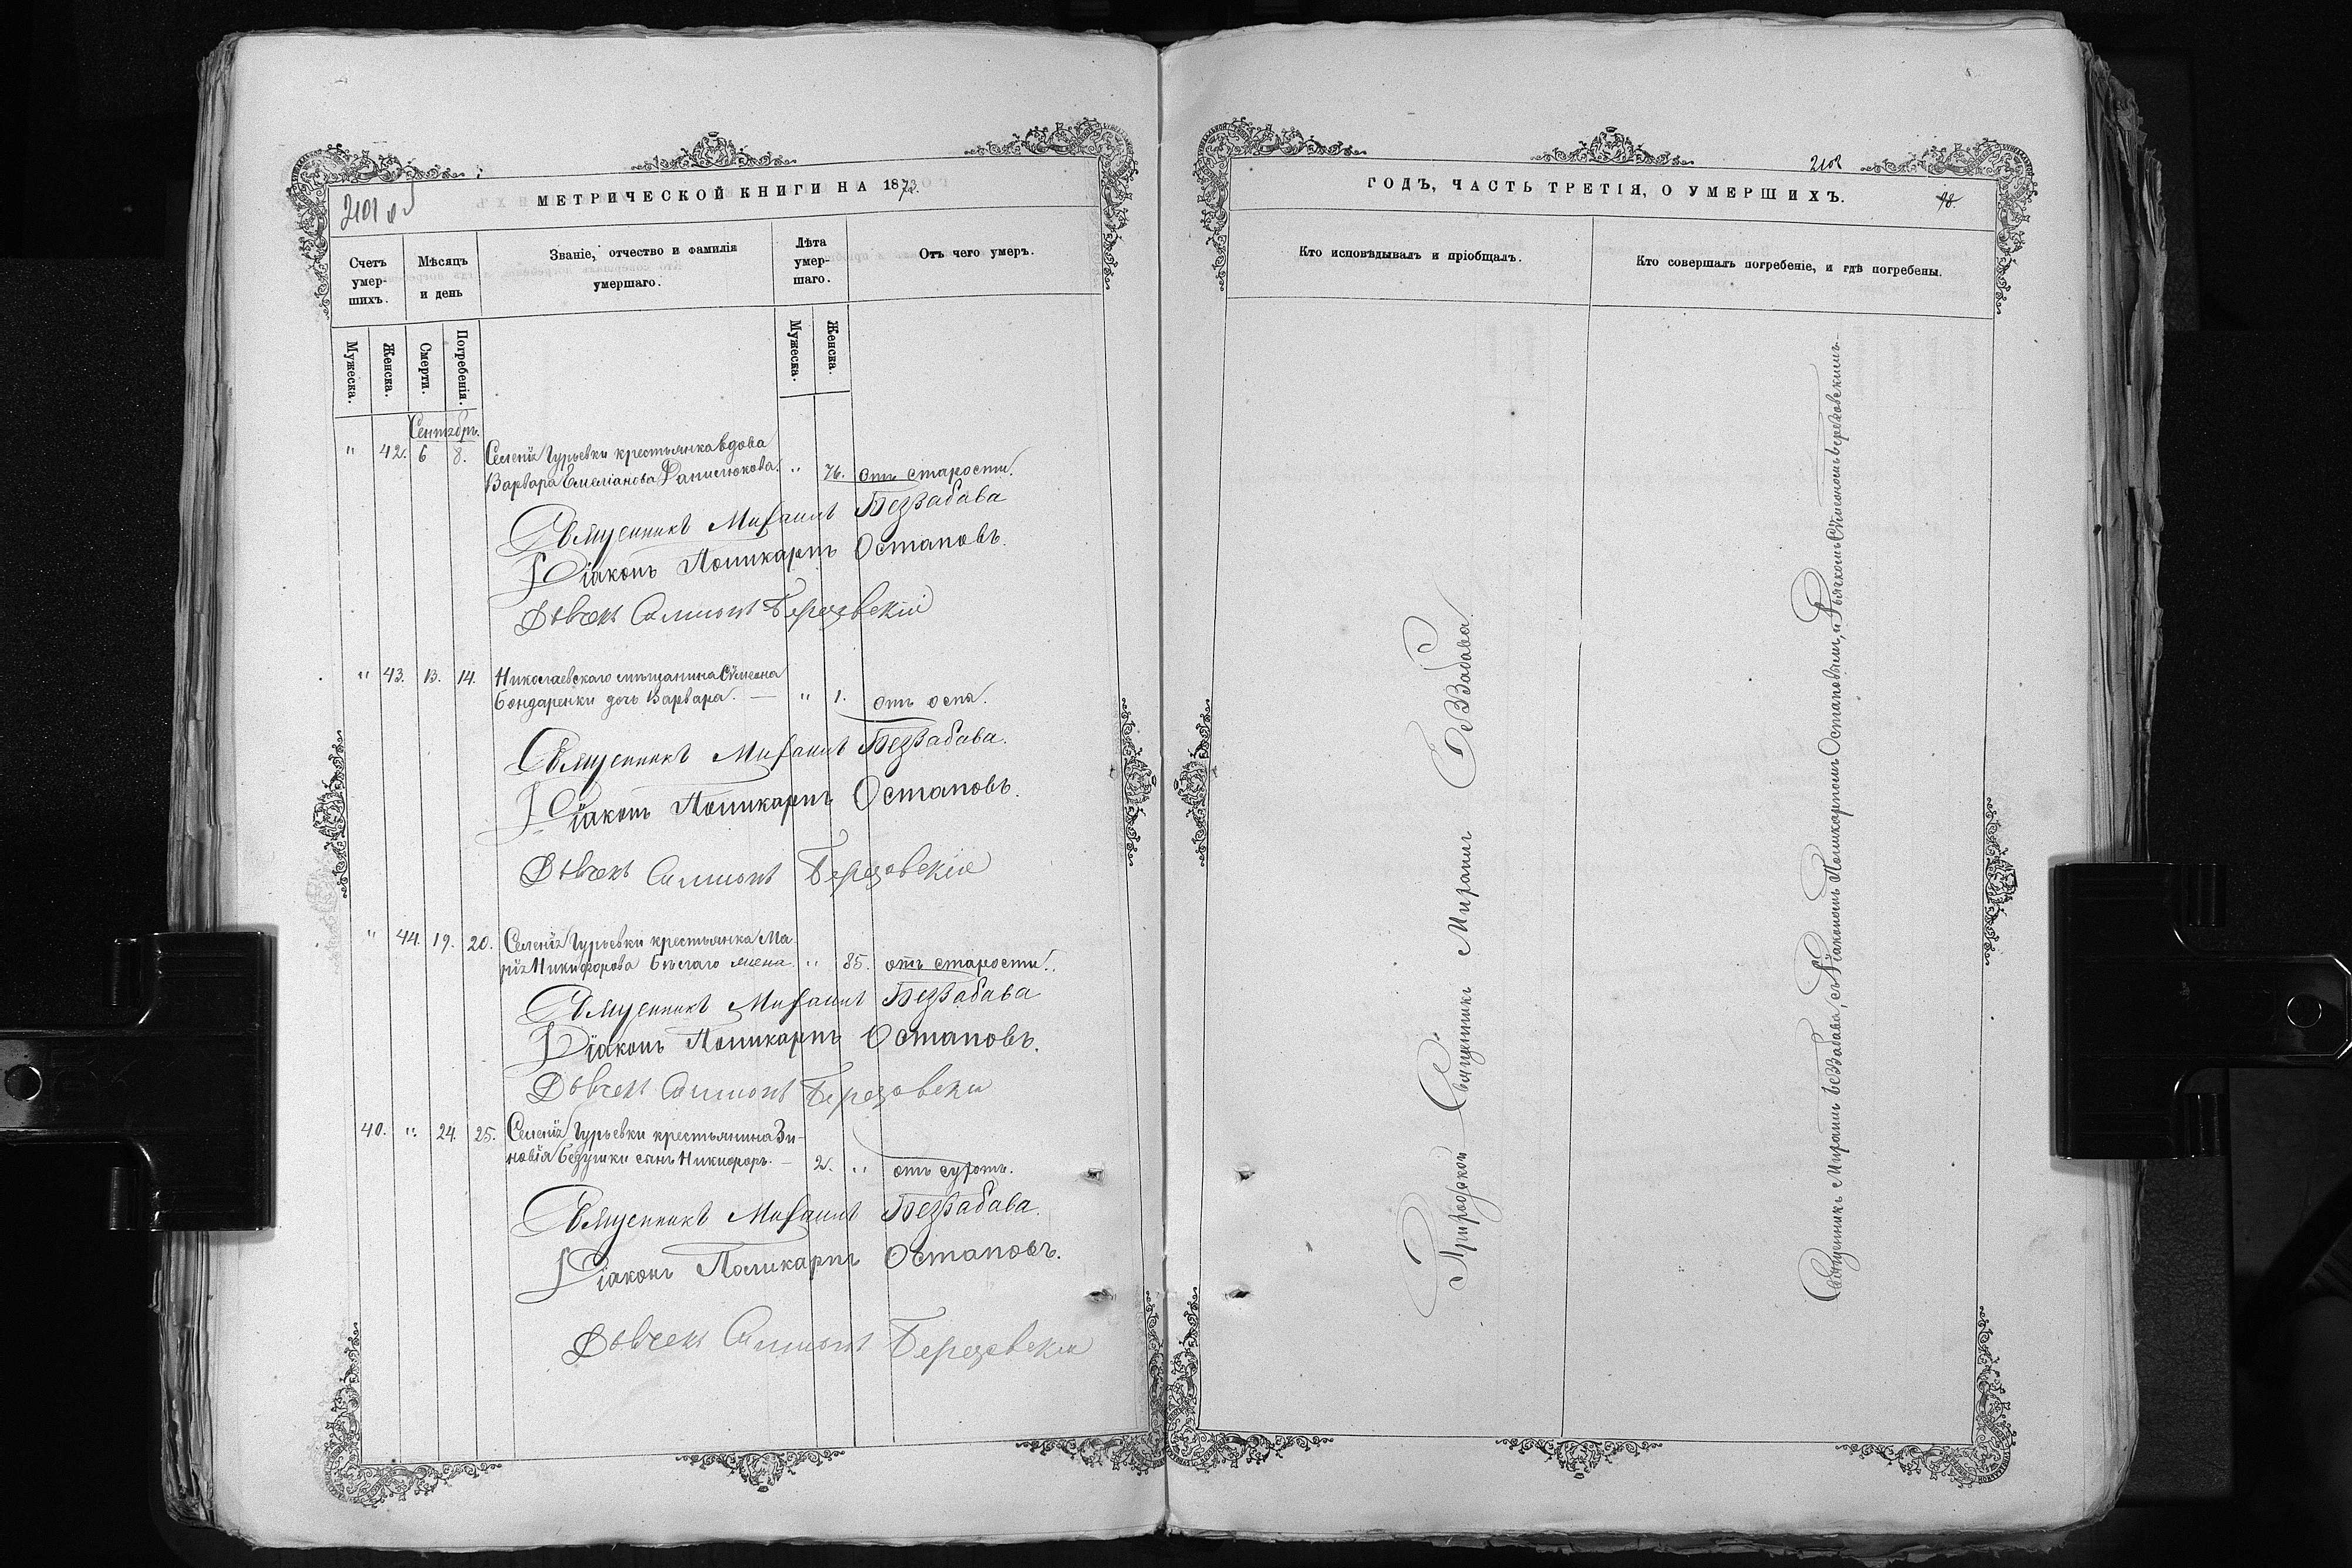 2101 об
МЕТРИЧЕСКОЙ КНИГИ НА 1873.
Счетъ умер-шихъ.
Мѣсяцъ и день
Званіе, отчество и фамилія умершаго.
Лѣта умер-шаго.
Отъ чего умеръ.
Мужеска.
Женска.
Смерти.
Погребенія.
Мужеска.
Женска.
Сентябрь.
" 42. 6 8. Селенія Гурьевки крестьянка вдова
Варвара Емеліанова Данилюкова. " 76. отъ старости.
Священникъ Михаилъ Беззабава
Діаконъ Поликарпъ Остаповъ.
Дьячекъ Симеонъ Березовскій
" 43. 13. 14. Николаевскаго мѣщанина Сѵмеона
Бондаренки дочь Варвара. — " 1. отъ оспы.
Священникъ Михаилъ Беззабава.
Діаконъ Поликарпъ Остаповъ.
Дьячекъ Симеонъ Березовскій
" 44. 19. 20. Селенія Гурьевки крестьянка Ма-
рія Никифорова Бѣлаго жена. " 85. отъ старости.
Священникъ Михаилъ Беззабава
Діаконъ Поликарпъ Остаповъ.
Дьячекъ Симеонъ Березовскій
40. " 24. 25. Селенія Гурьевки крестьянина Зи-
новія Безушки сынъ Никифоръ. — 2. " отъ сухотъ.
Священникъ Михаилъ Беззабава.
Діаконъ Поликарпъ Остаповъ.
Дьячекъ Симеонъ Березовскій
2102
ГОДЪ, ЧАСТЬ ТРЕТІЯ, О УМЕРШИХЪ.
98.
Кто исповѣдывалъ и пріобщалъ.
Кто совершалъ погребеніе, и гдѣ погребены.
Приходской Священникъ Михаилъ Беззабава.
Священникъ Михаилъ Беззабава, съ Діакономъ Поликарпомъ Остаповымъ, и Дьячкомъ Сѵмеономъ Березовскимъ.